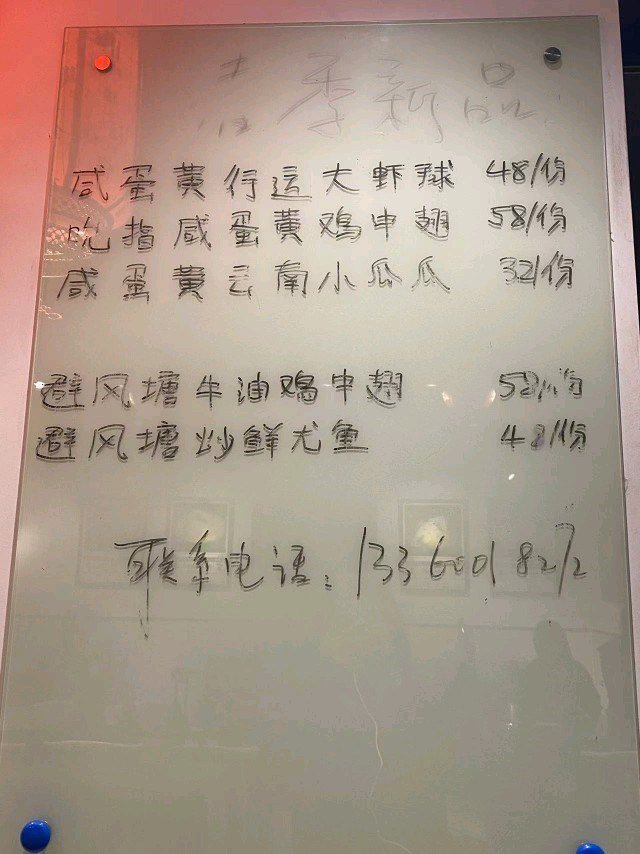 季新品
咸蛋黄行运大虾球 48/份
吮指咸蛋黄鸡中翅 58/份
咸蛋黄云南小瓜瓜 32/份
避风塘牛油鸡中翅 58/份
避风塘炒鲜尤鱼 48/份
联系电话：13360018272